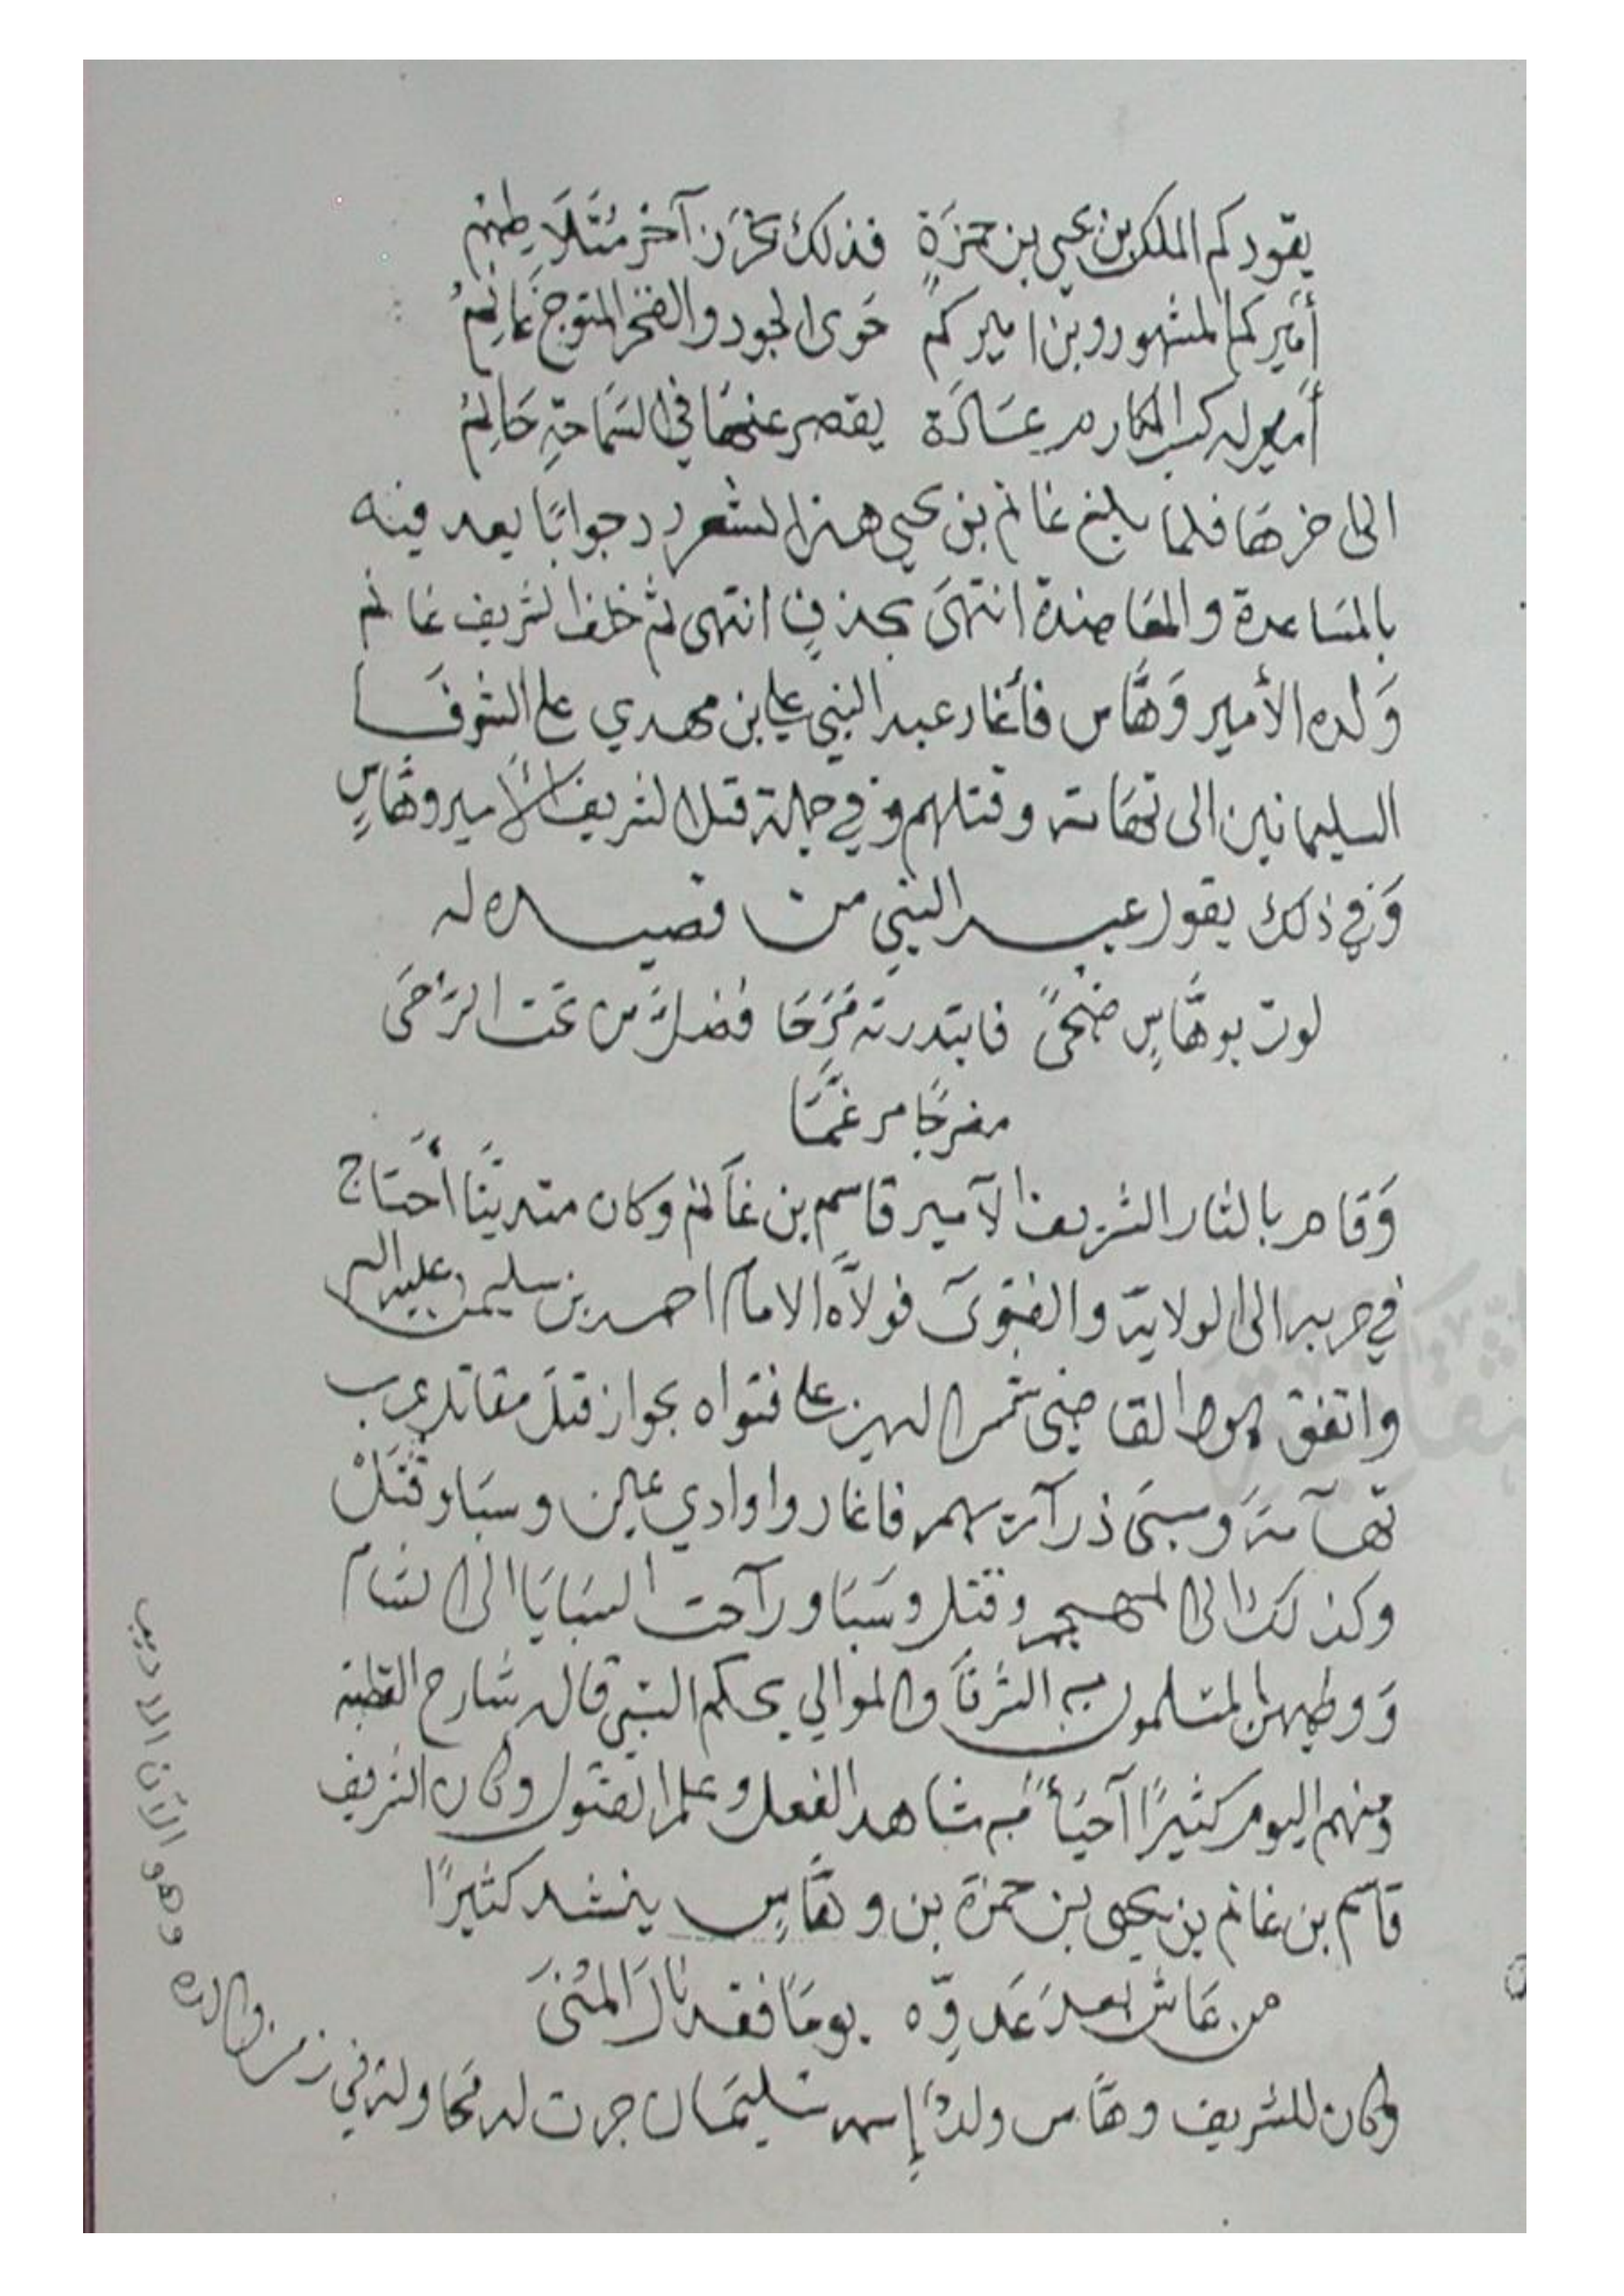 يقودكم الملك بن يحيى بن حمزةٍ فذلك بحرٌ زاخر متلاطم
أميركم المشهور وبن اميركم حَوى الجود والفخر المتوج غانمُ
أمير له كسب المكارم عَادَة يقصر عنها في السَمَاحَةِ حَاتِمُ
الى اخرهَا فلما بلغ غانم بن يحيى هذا الشعر رد جوابًا يعد فيه
بالمسَاعدة والمعَاضدة انتهىَ بحذفٍ انتهى ثم خلف الشريف غانم
وَلده الأمير وَهَّاس فأغار عبد النبي علي بن مهدي على الشرفَا
السليمانين الى تهَامة وقتلهم وفي جملة قتلا الشريف الأمير وهَّاسٍ
وَفي ذلك يقول عبد النبي من قصيده له
لوت بوهَّاسٍ ضحىً فابتدرته فَرَحَا فضلَّ من تحت الرَحَى
مضرجًا مرغمًا
وَقام بالثار الشريف الآمير قاسم بن غَانم وكان متدينًا احتَاج
في حربه الى الولاية والفتوىَ فولاَّه الامام احمد بن سليمن عليه السلم
واتفق القاضي على فتواه بجواز قتلَ مقاتلة عرب
تهآمةَ وسبىَ ذرآريهم فاغاروا وادي عين وسبَا وقتَلْ
وكذلك الى المهجم وقتل وسَبَا ورآحت السبَايَا الى الشام
وَوطيهن المسلمون من الشرفَا والموالي بحكم النبي قال شارح القطبة
ومنهم اليوم كثيرًا آحيَأً من شاهد الفعل وعلم القتول وكان الشريف
قاسم بن غانم بن يحيى بن حمزة بن وهَّاسٍ ينشد كثيرًا
من عَاش بعدَ عَدوِّه يومًا فقد نالَ المُنىَ
وكان للشريف وهَّاس ولدٌ إسمه سليمَان جرت له محَاولة في زمن والده وهو الآن الاديب